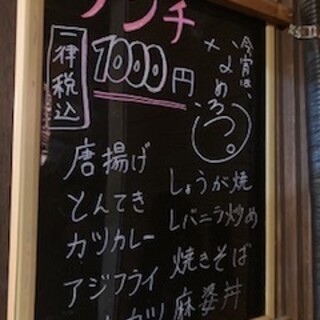 ランチ
一律税込
1000円
今宵は、
唐揚げ
とんてき
カツカレー
アジフライ
カツ
しょうが焼
レバニラ炒め
焼きそば
麻婆丼